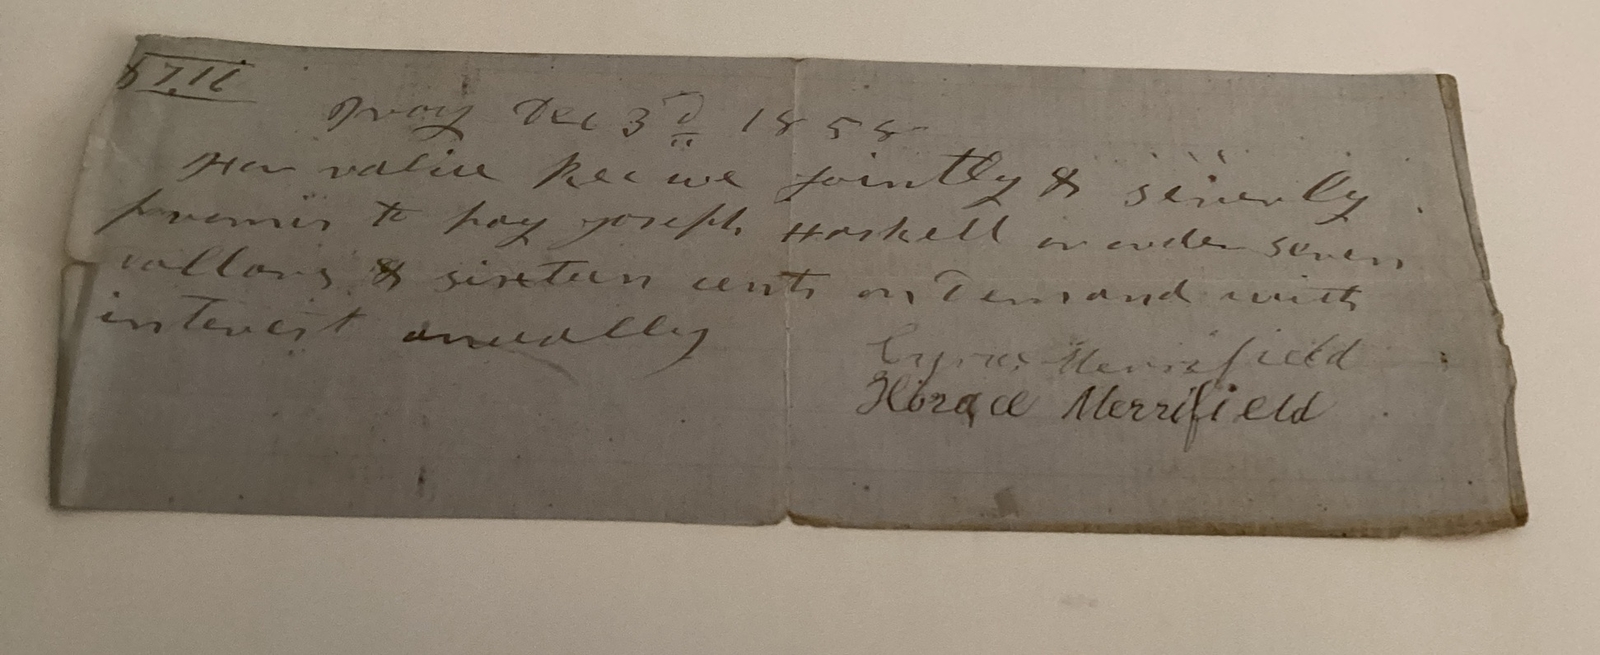 $7,16
Troy Dec 3rd 1858
For value Rec we jointly & severly
promis to pay Joseph Haskell or order seven
dollars & sixteen cents on Demand with
interest anually
Cyrus Merrifield
Horace Merrifield